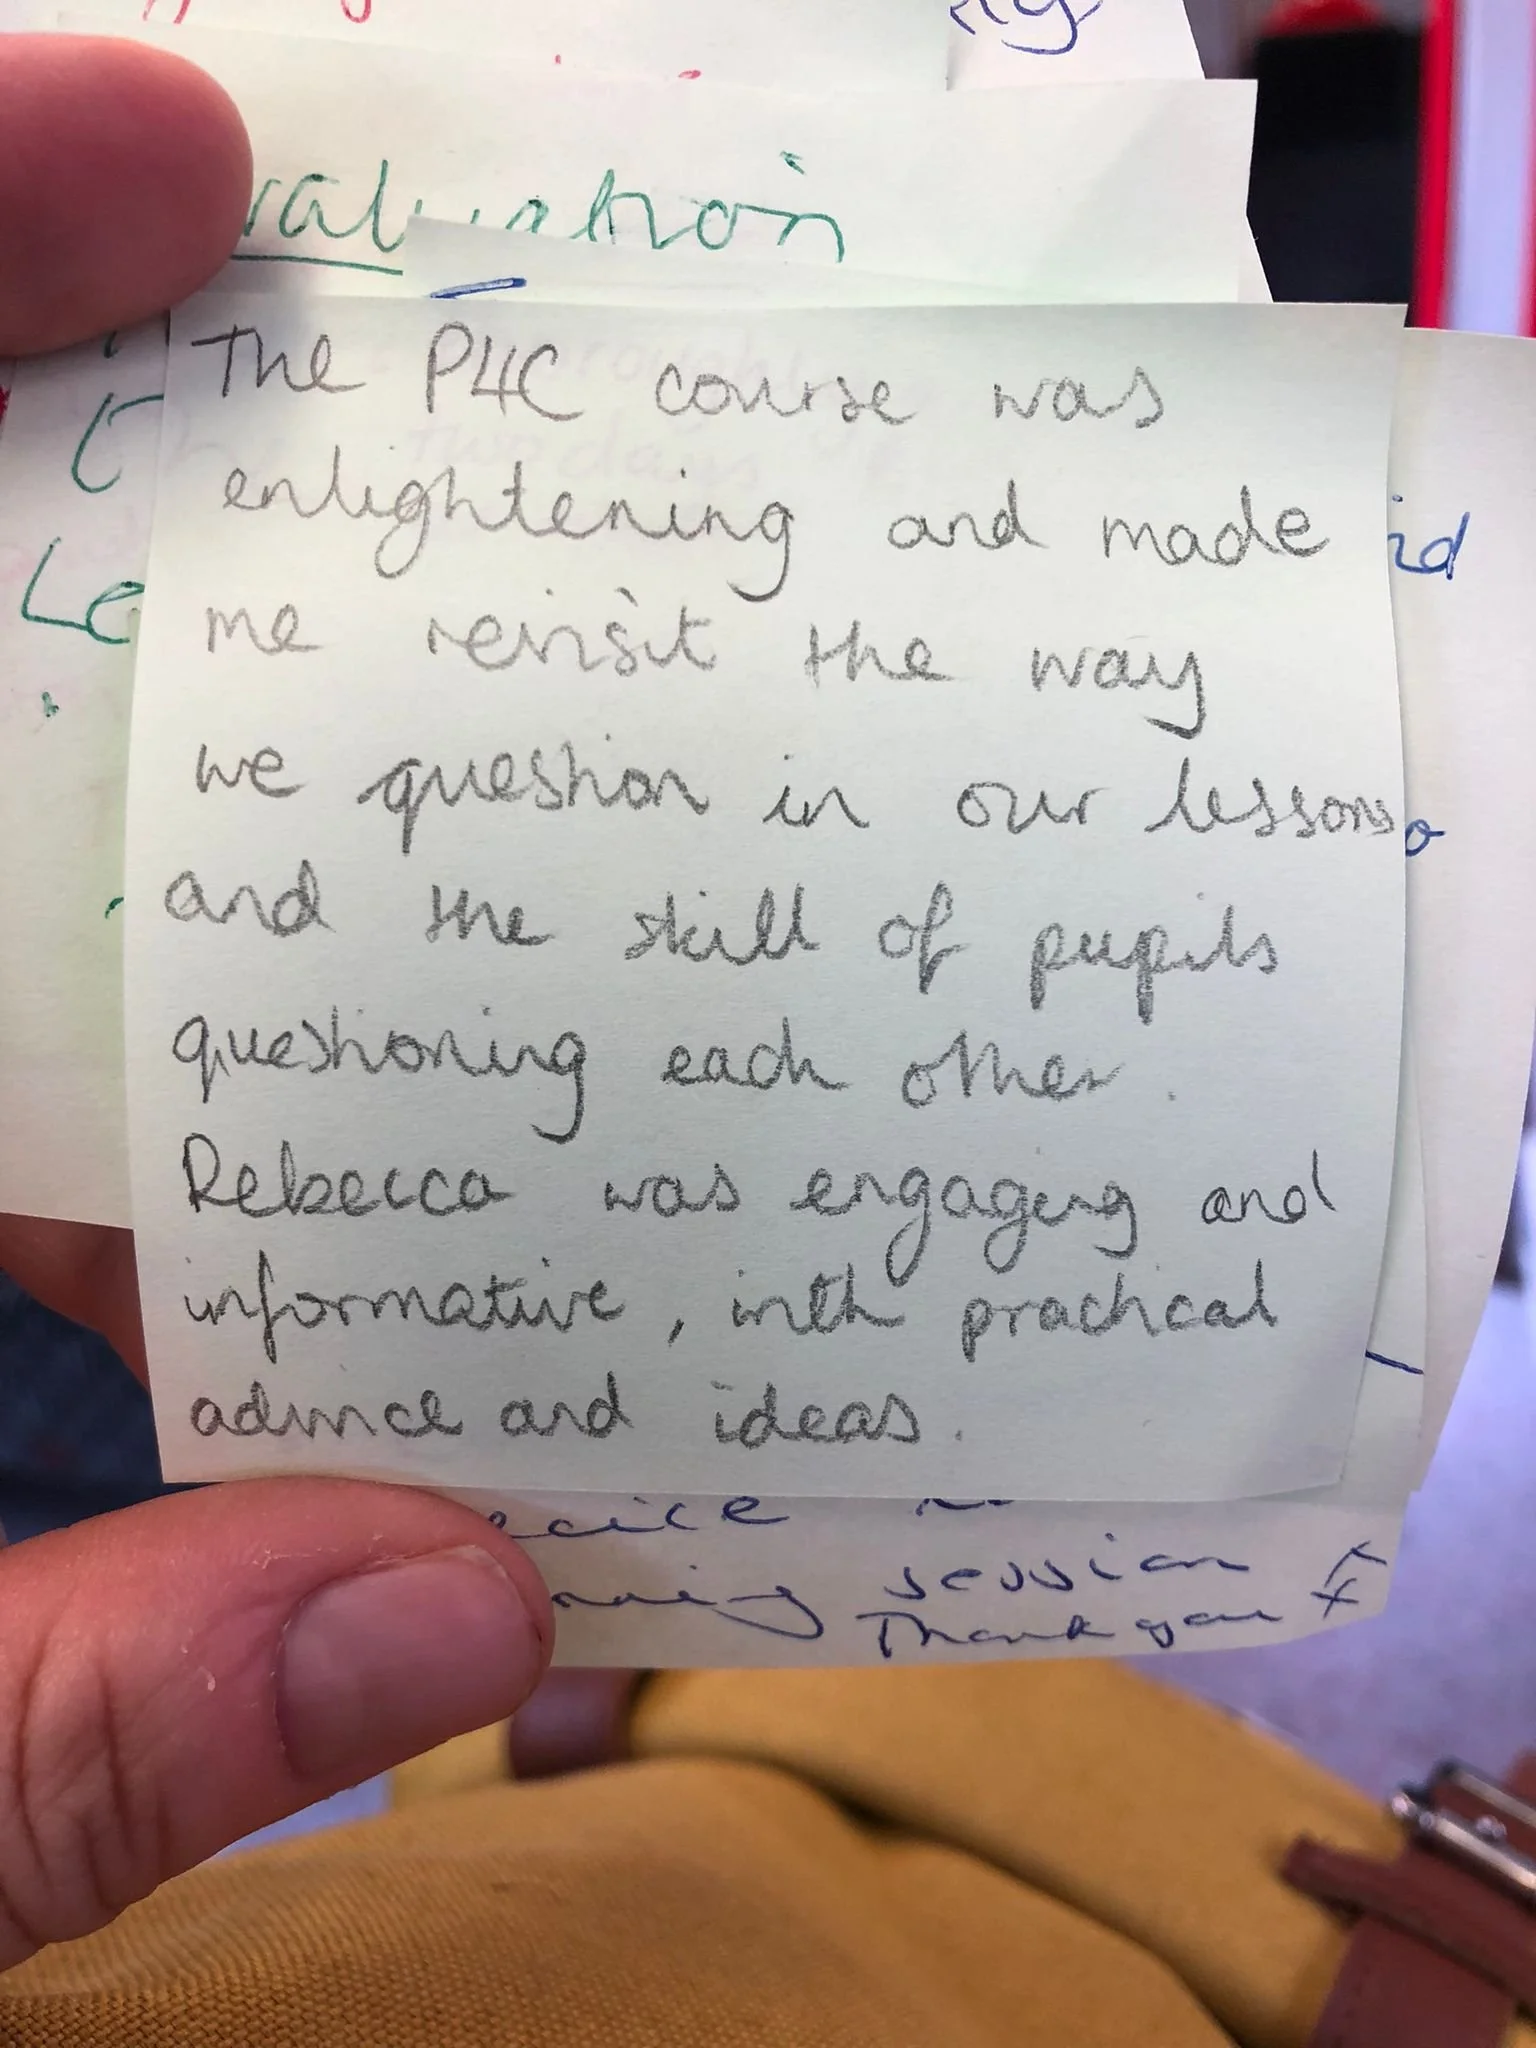 The P4C course was
enlightening and made
me revisit the way
we question in our lessons
and the skill of pupils
questioning each other.
Rebecca was engaging and
informative, with practical
advice and ideas.
session
Thank you x